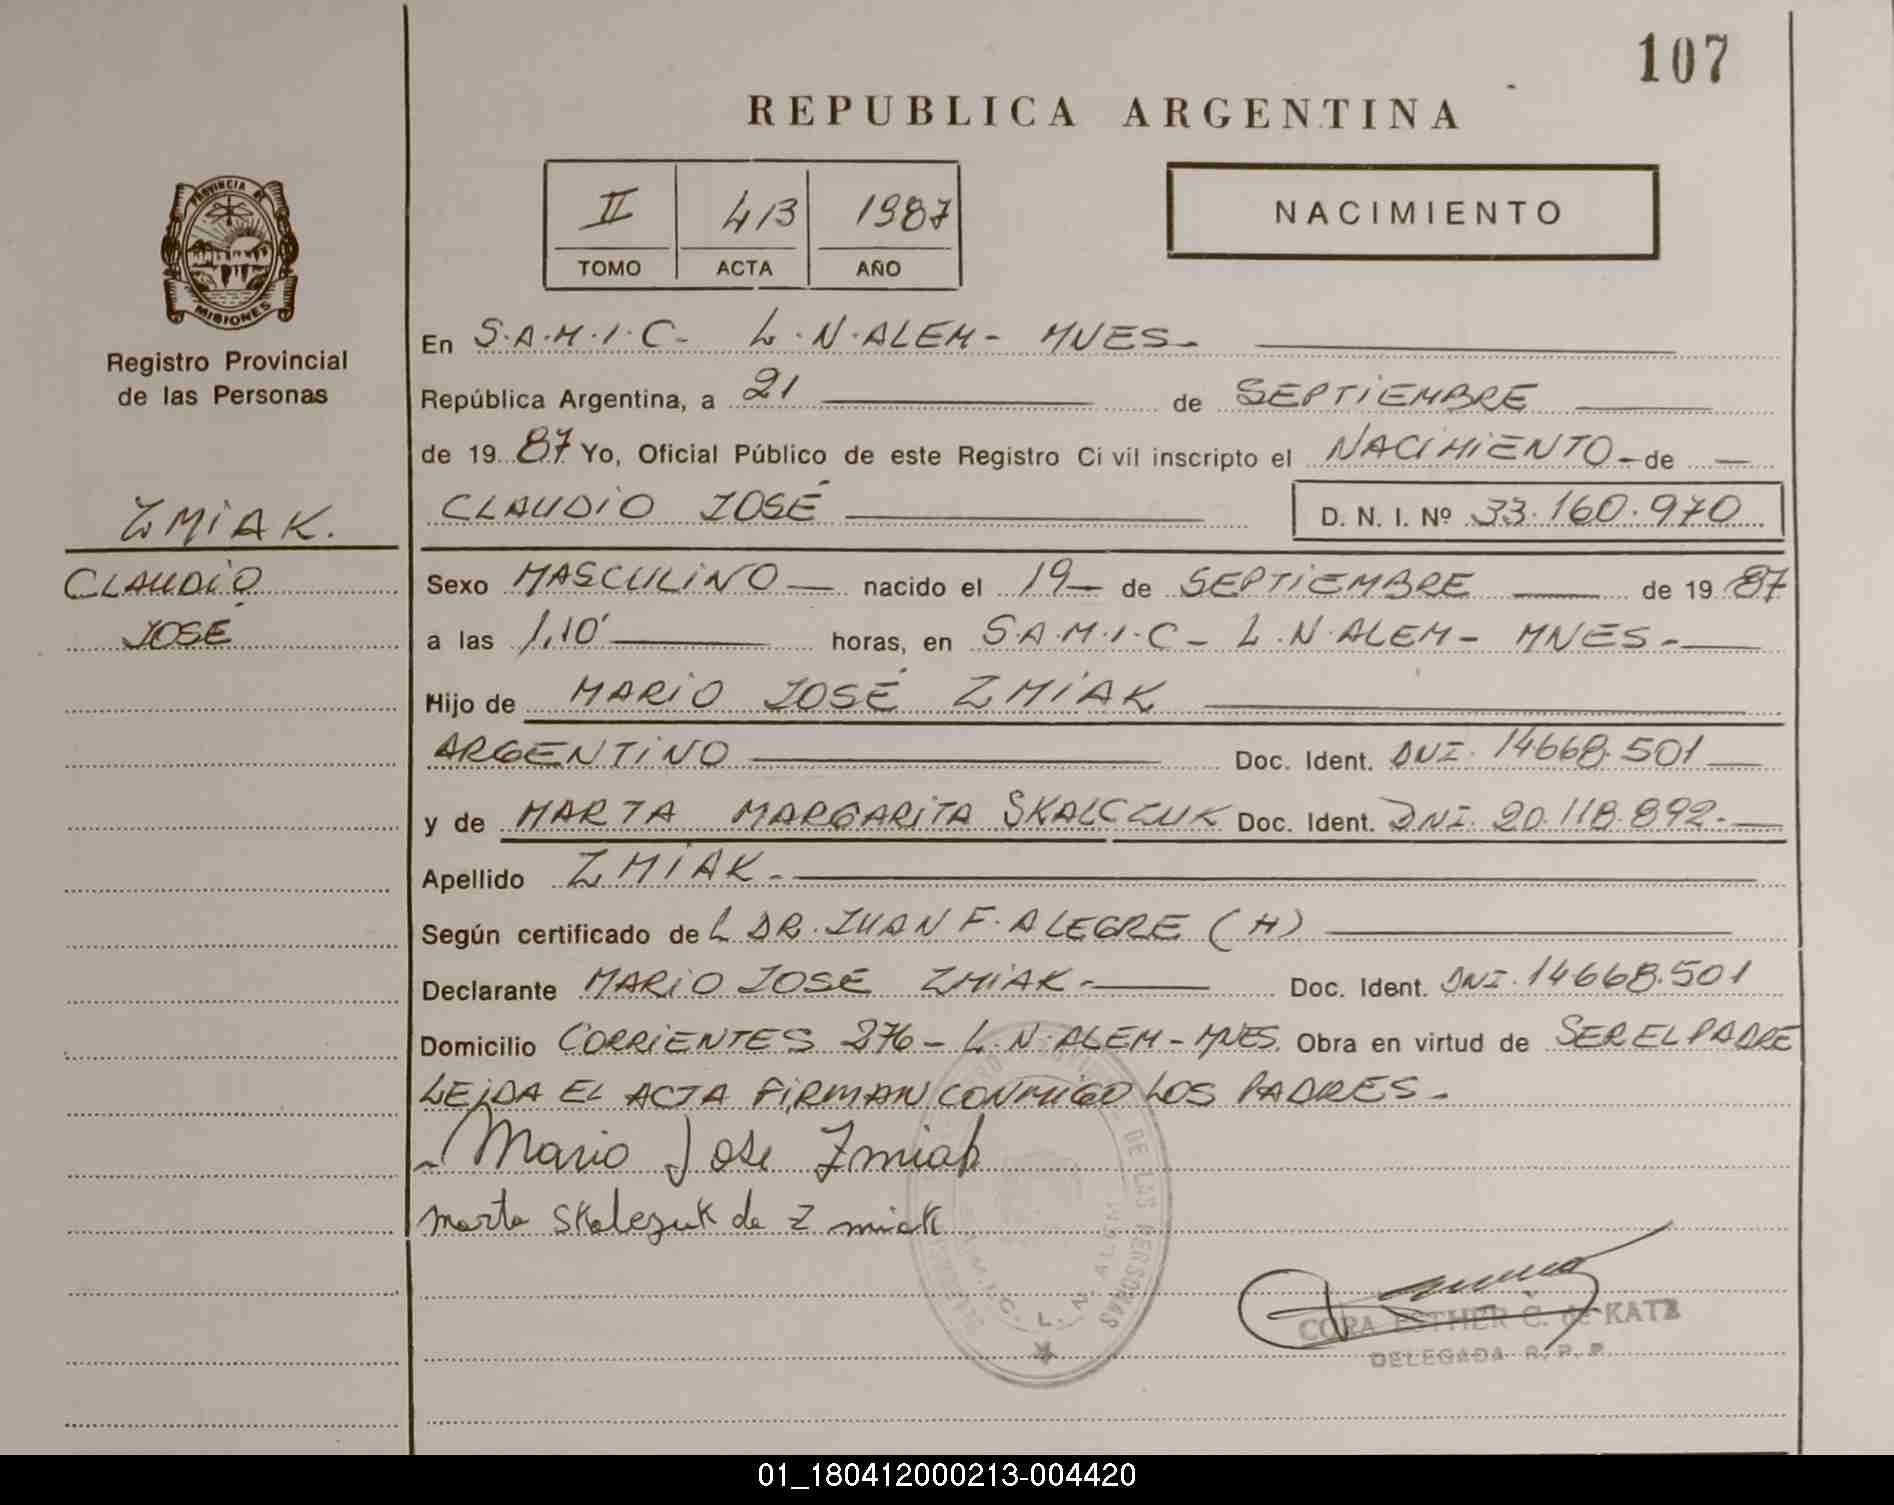 107
REPUBLICA ARGENTINA
II 413 1987
TOMO ACTA AÑO
NACIMIENTO
PROVINCIA DE
MISIONES
Registro Provincial
de las Personas
ZMIAK.
CLAUDIO
JOSÉ
En S.A.M.I.C- L.N.ALEM- MNES-
República Argentina, a 21 de SEPTIEMBRE
de 1987 Yo, Oficial Público de este Registro Civil inscripto el NACIMIENTO - de —
CLAUDIO JOSÉ D. N. I. Nº 33.160.970
Sexo MASCULINO — nacido el 19 — de SEPTIEMBRE de 1987
a las 1,10' horas, en S.A.M.I.C- L.N.ALEM- MNES-
Hijo de MARIO JOSÉ ZMIAK
ARGENTINO Doc. Ident. DNI. 14668.501
y de MARTA MARGARITA SKALCZUK Doc. Ident. DNI. 20.118.892.-
Apellido ZMIAK.-
Según certificado del DR. JUAN F. ALEGRE (H)
Declarante MARIO JOSE ZMIAK.- Doc. Ident. DNI. 14668.501
Domicilio CORRIENTES 276- L.N.ALEM-MNES. Obra en virtud de SER EL PADRE
LEIDA EL ACTA FIRMAN CONMIGO LOS PADRES-
Mario Jose Zmiak
Marta Skalczuk de Zmiak
DE LAS PERSONAS
S.A.M.I.C. L. N. ALEM
CORA ESTHER C. de KATZ
DELEGADA R. P. P.
01_180412000213-004420